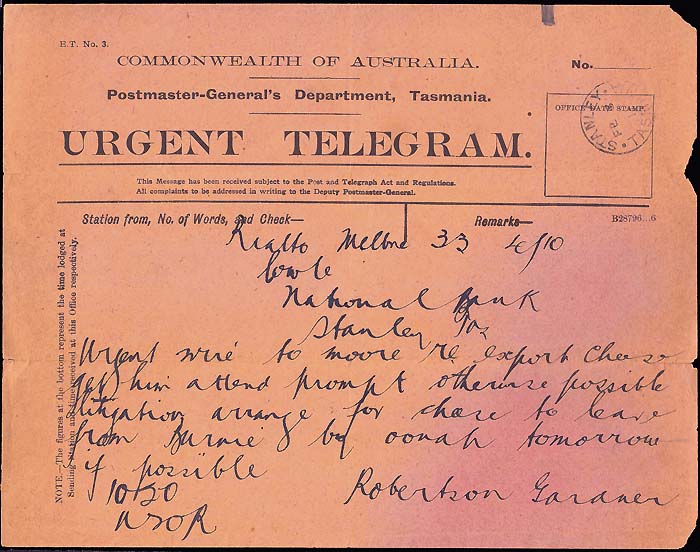 E.T. No. 3.
COMMONWEALTH OF AUSTRALIA.
No.
Postmaster-General's Department, Tasmania.
OFFICE DATE STAMP.
STANLEY
TAS
URGENT TELEGRAM.
This Message has been received subject to the Post and Telegraph Act and Regulations.
All complaints to be addressed in writing to the Deputy Postmaster-General.
Station from, No. of Words, and Check—
Remarks—
B28796...6
Rialto Melbne 33 4/10
National Bank
Stanley Tas
Urgent wire to moore re export cheese
get him attend prompt otherwise possible
litigation arrange for chese to leave
from Burnie by oonah tomorrow
if possible
10 30
Robertson Gardner
NOTE.—The figures at the bottom represent the time lodged at
Sending Station and time received at this Office respectively.